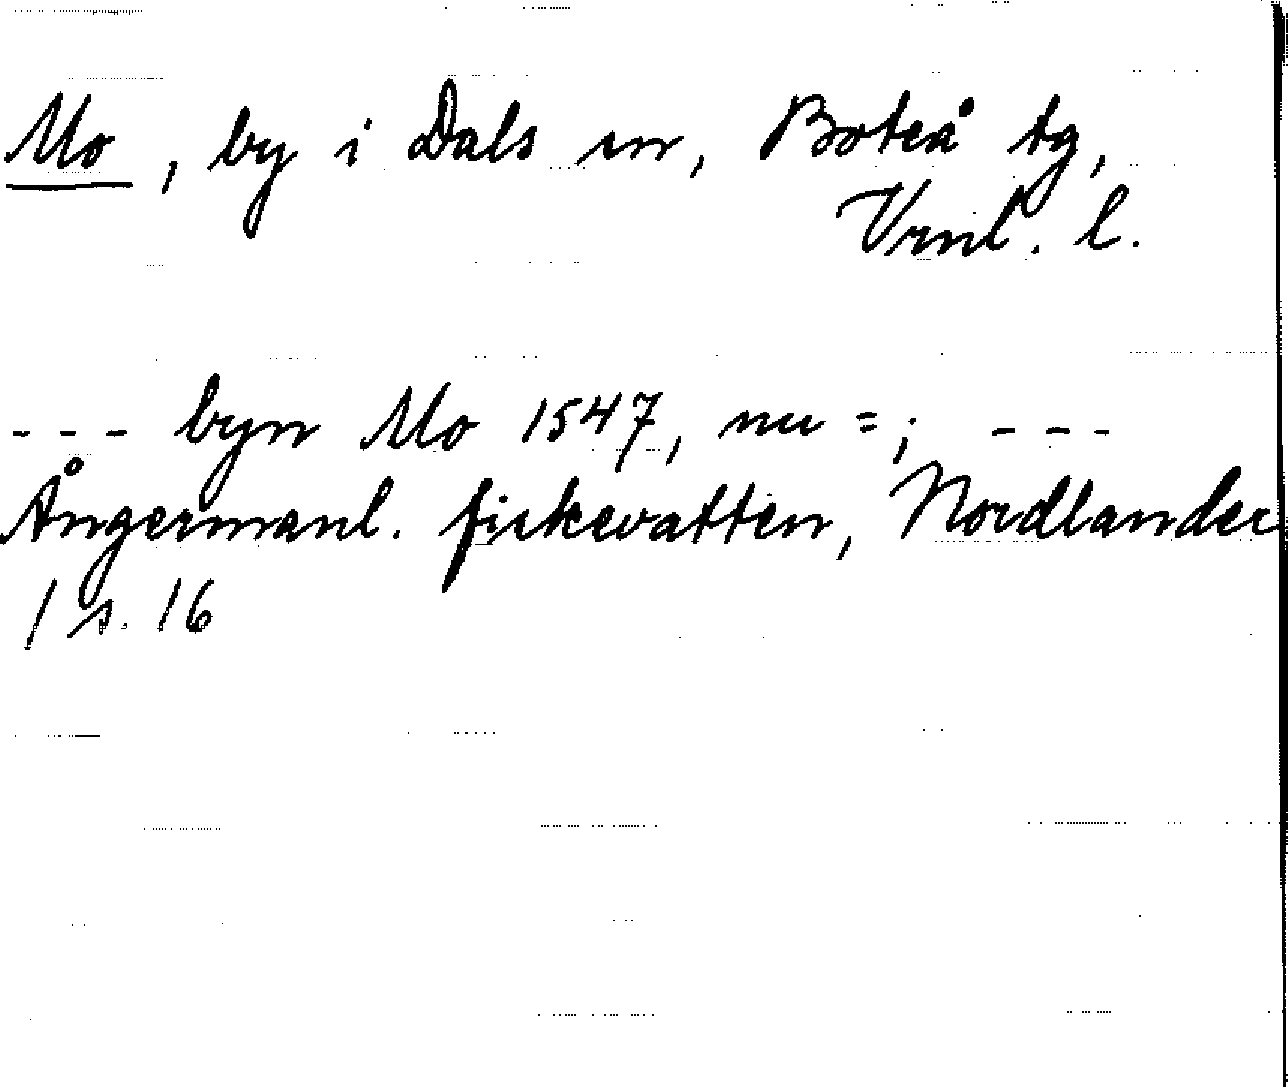 Mo, by i Dals sn, Boteå tg,
Vrnl. l.
--- byn Mo 1547, nu =; ---
Ångermanl. fiskevatten, Nordlander
1 s. 16